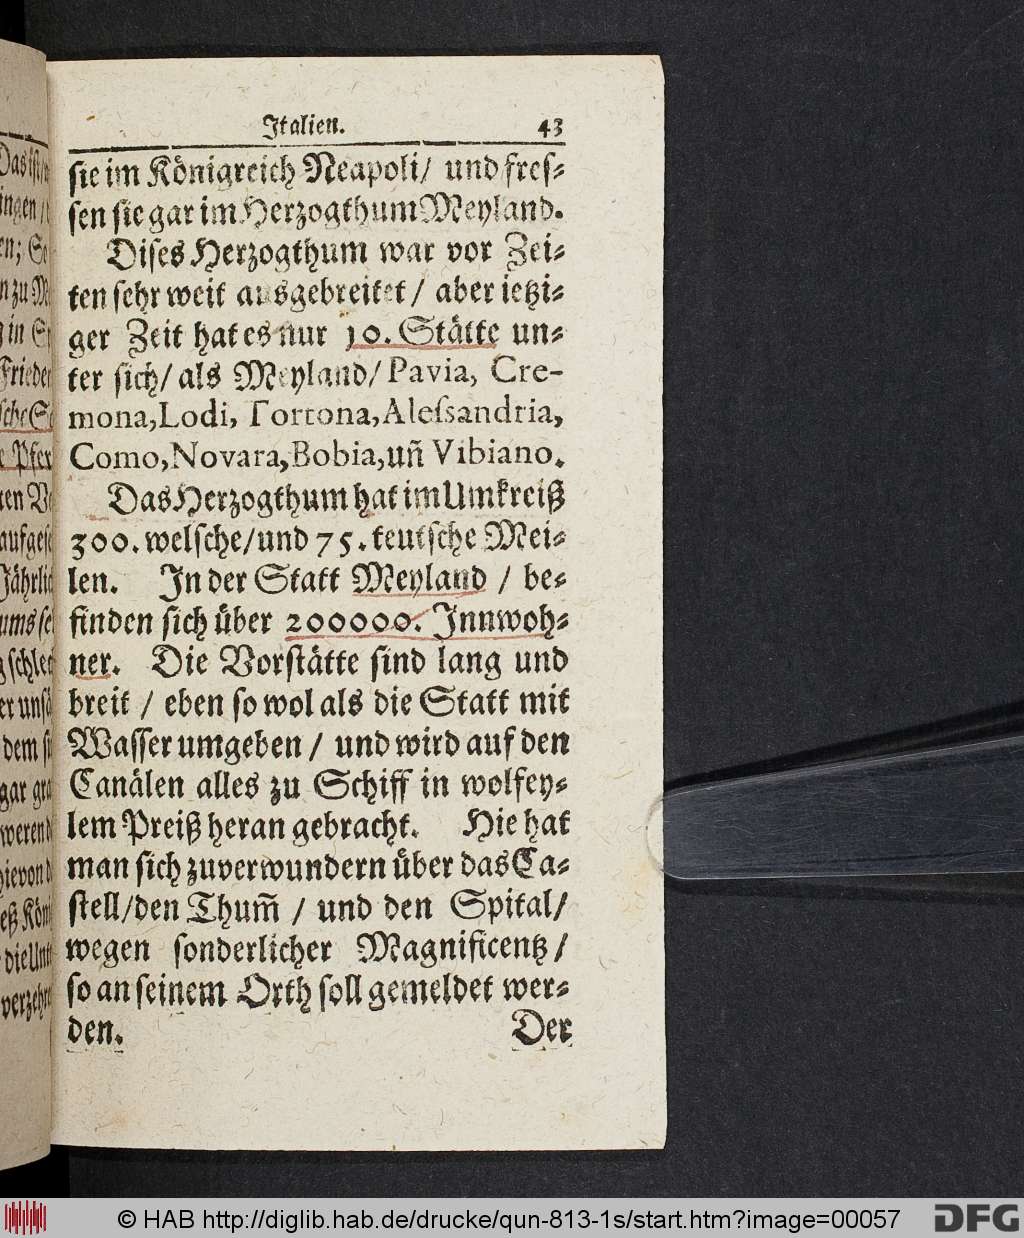 Italien. 43
sie im Königreich Neapoli/ und fres-
sen sie gar im Herzogthum Meyland.
Dises Herzogthum war vor Zei-
ten sehr weit ausgebreitet/ aber ietzi-
ger Zeit hat es nur 10. Stätte un-
ter sich/ als Meyland/ Pavia, Cre-
mona, Lodi, Tortona, Alessandria,
Como, Novara, Bobia, uñ Vibiano.
Das Herzogthum hat im Umkreiß
300. welsche/und 75. teutsche Mei-
len. In der Statt Meyland / be-
finden sich über 200000. Innwoh-
ner. Die Vorstätte sind lang und
breit / eben so wol als die Statt mit
Wasser umgeben / und wird auf den
Canälen alles zu Schiff in wolfey-
lem Preiß heran gebracht. Hie hat
man sich zuverwundern über das Ca-
stell/den Thum̃ / und den Spital/
wegen sonderlicher Magnificentz /
so an seinem Orth soll gemeldet wer-
den. Der
© HAB http://diglib.hab.de/drucke/qun-813-1s/start.htm?image=00057 DFG